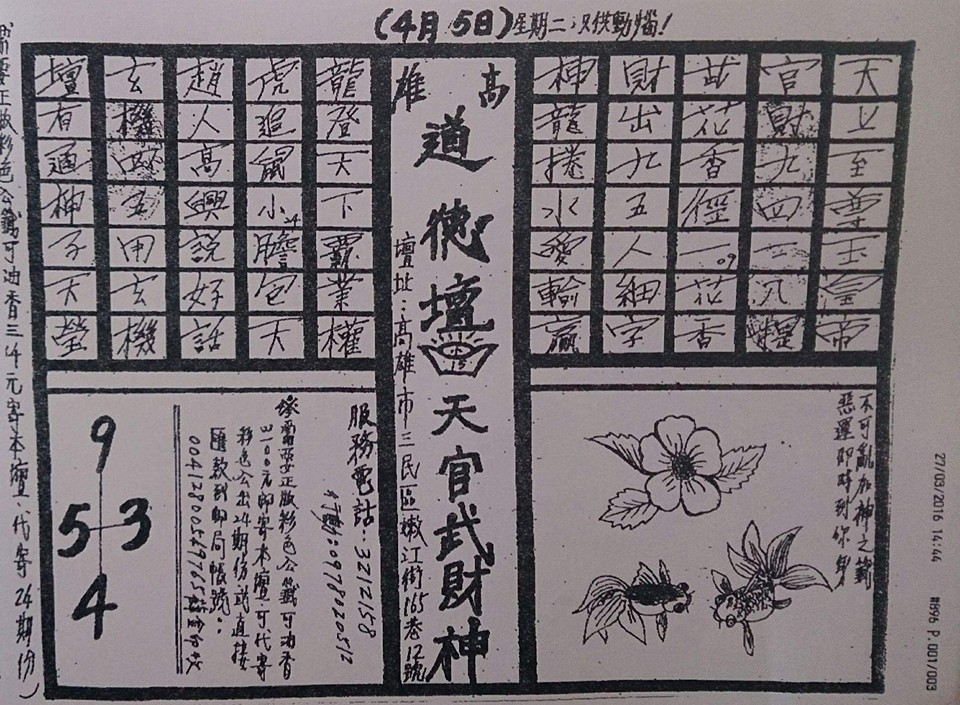 (4月5日)星期二:只供動腦!
天上至尊玉皇帝
官財九四二八提
此花香徑一09花香
財出九五人細字
神龍捲水愛輸贏
高雄
道德壇
天官武財神
壇址:高雄市三民區嫩江街165巷12號
龍登天下霸業權
虎追鼠小24膽包天
趙人高興說好話
玄機四五用玄機
壇有通神子天瑩
不可亂
神之籤
惡運即時到你身
服務電話:3212158
0978020512
需要正版彩色公籤可油香
元即寄本壇.可代寄
彩色公出24期份或直接
匯款到郵局帳號:
9
5 3
4
需要正版彩色公籤可油香三仟元寄本壇.代寄24期份)
27/03/2016 14:44
#896 P.001/003